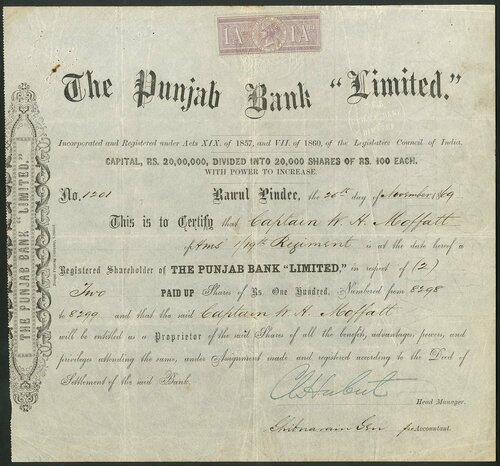 1A 1A
The Punjab Bank "Limited."
Incorporated and Registered under Acts XIX. of 1857, and VII. of 1860, of the Legislative Council of India.
CAPITAL, RS. 20,00,000, DIVIDED INTO 20,000 SHARES OF RS. 100 EACH.
WITH POWER TO INCREASE
No. 1201 Rawul Pindee, the 20th day of November 1869
This is to Certify that Captain W. H. Moffatt
of Hms 1/19th Regiment is at the date hereof a
Registered Shareholder of THE PUNJAB BANK "LIMITED," in respect of (2)
Two PAID UP Shares of Rs. One Hundred. Numbered from 8298
to 8299 and that the said Captain W. H. Moffatt
will be entitled as a Proprietor of the said Shares of all the benefits, advantages, powers, and
privileges attending the same, under Assignment made and registered according to the Deed of
Settlement of the said Bank.
Head Manager.
Shibnarain Sen pro Accountant.
THE PUNJAB BANK "LIMITED."